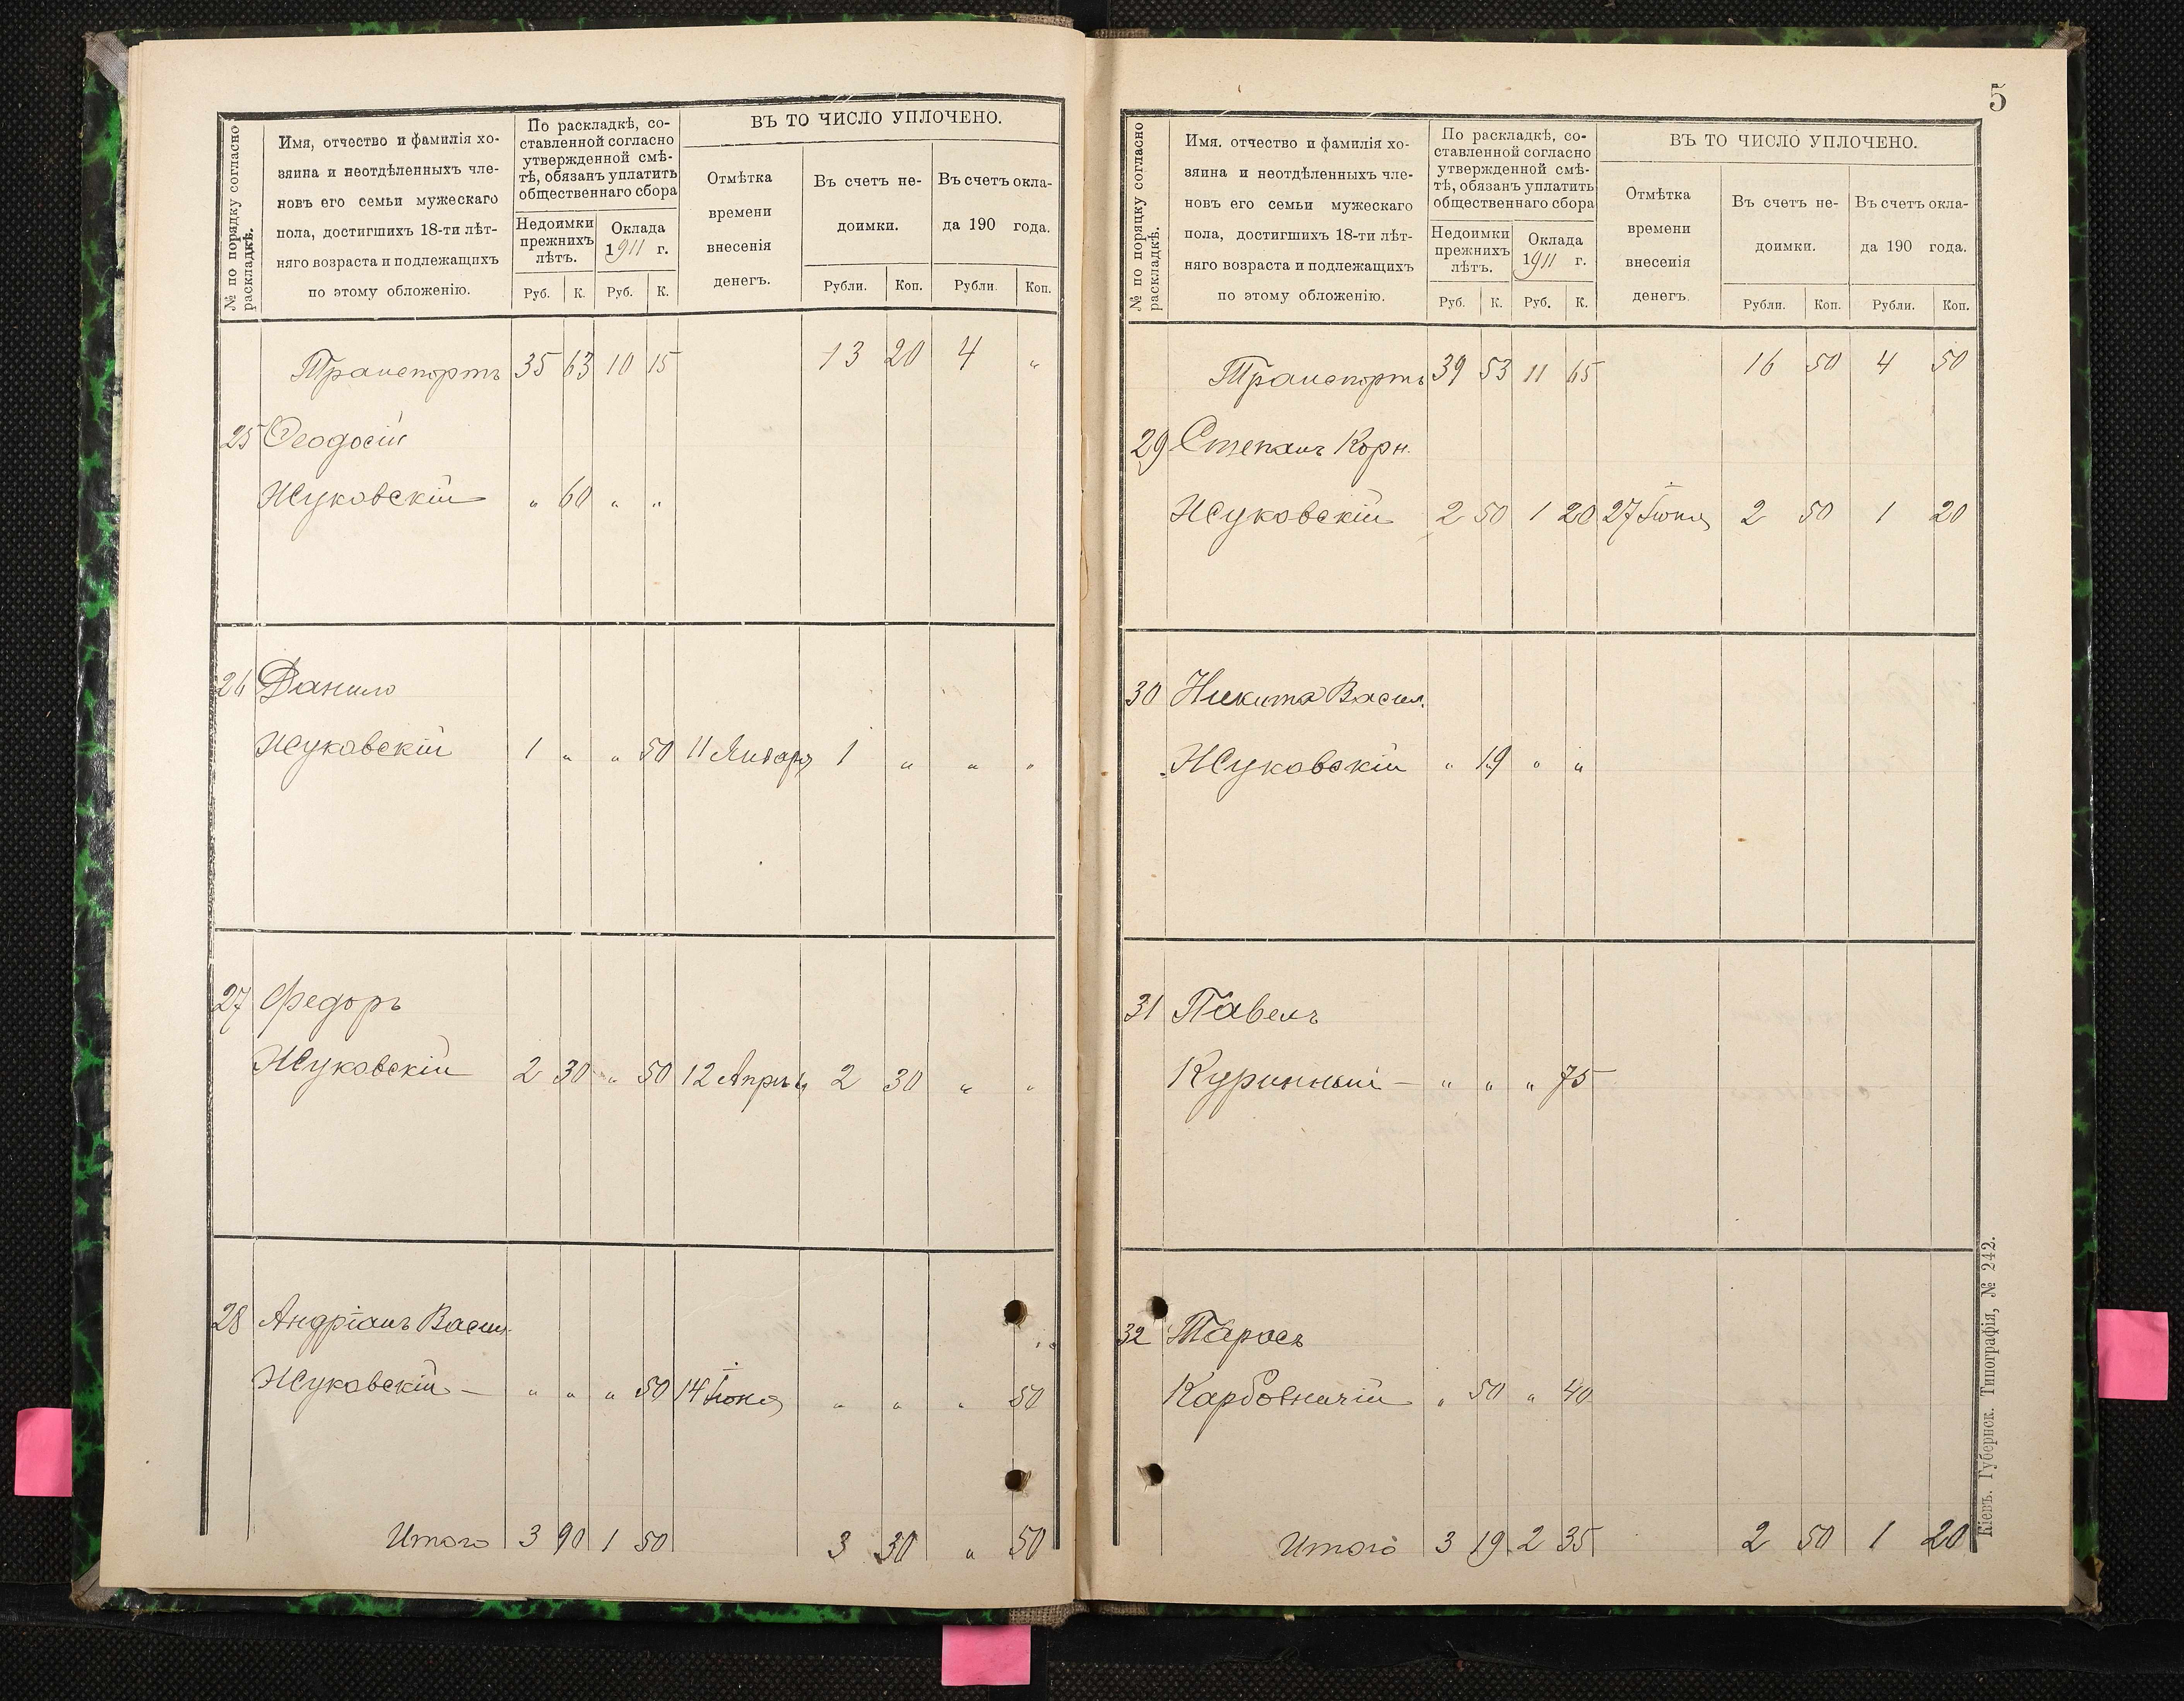 № по порядку согласно раскладкѣ.
Имя, отчество и фамилія хо-
зяина и неотдѣленныхъ чле-
новъ его семьи мужескаго
пола, достигшихъ 18-ти лѣт-
няго возраста и подлежащихъ
по этому обложенію.
По раскладкѣ, со-
ставленной согласно
утвержденной смѣ-
тѣ, обязанъ уплатить
общественнаго сбора
Недоимки
прежнихъ
лѣтъ.
Оклада
1911 г.
Руб. К. Руб. К.
ВЪ ТО ЧИСЛО УПЛОЧЕНО.
Отмѣтка
времени
внесенія
денегъ.
Въ счетъ не-
доимки.
Въ счетъ окла-
да 190 года.
Рубли. Коп. Рубли. Коп.
Транспортъ 35 63 10 15 13 20 4 „
25 Ѳеодосій
Жуковскій „ 60 „ „
26 Данило
Жуковскій 1 „ „ 50 11 Января 1 „ „ „
27 Федоръ
Жуковскій 2 30 „ 50 12 Апрѣля 2 30 „ „
28 Андріанъ Васил.
Жуковскій — „ „ „ 50 14 Іюня „ „ „ 50
Итого 3 90 1 50 3 30 „ 50
5
№ по порядку согласно раскладкѣ.
Имя. отчество и фамилія хо-
зяина и неотдѣленныхъ чле-
новъ его семьи мужескаго
пола, достигшихъ 18-ти лѣт-
няго возраста и подлежащихъ
по этому обложенію.
По раскладкѣ, со-
ставленной согласно
утвержденной смѣ-
тѣ, обязанъ уплатить
общественнаго сбора
Недоимки
прежнихъ
лѣтъ.
Оклада
1911 г.
Руб. К. Руб. К.
ВЪ ТО ЧИСЛО УПЛОЧЕНО.
Отмѣтка
времени
внесенія
денегъ.
Въ счетъ не-
доимки.
Въ счетъ окла-
да 190 года.
Рубли. Коп. Рубли. Коп.
Транспортъ 39 53 11 65 16 50 4 50
29 Степанъ Корн.
Жуковскій 2 50 1 20 27 Іюня 2 50 1 20
30 Никита Васил.
Жуковскій „ 19 „ „
31 Павелъ
Куринный — „ „ „ 75
32 Тарасъ
Карбовничій „ 50 „ 40
Итого 3 19 2 35 2 50 1 20
Кіевъ. Губернск. Типографія, № 242.